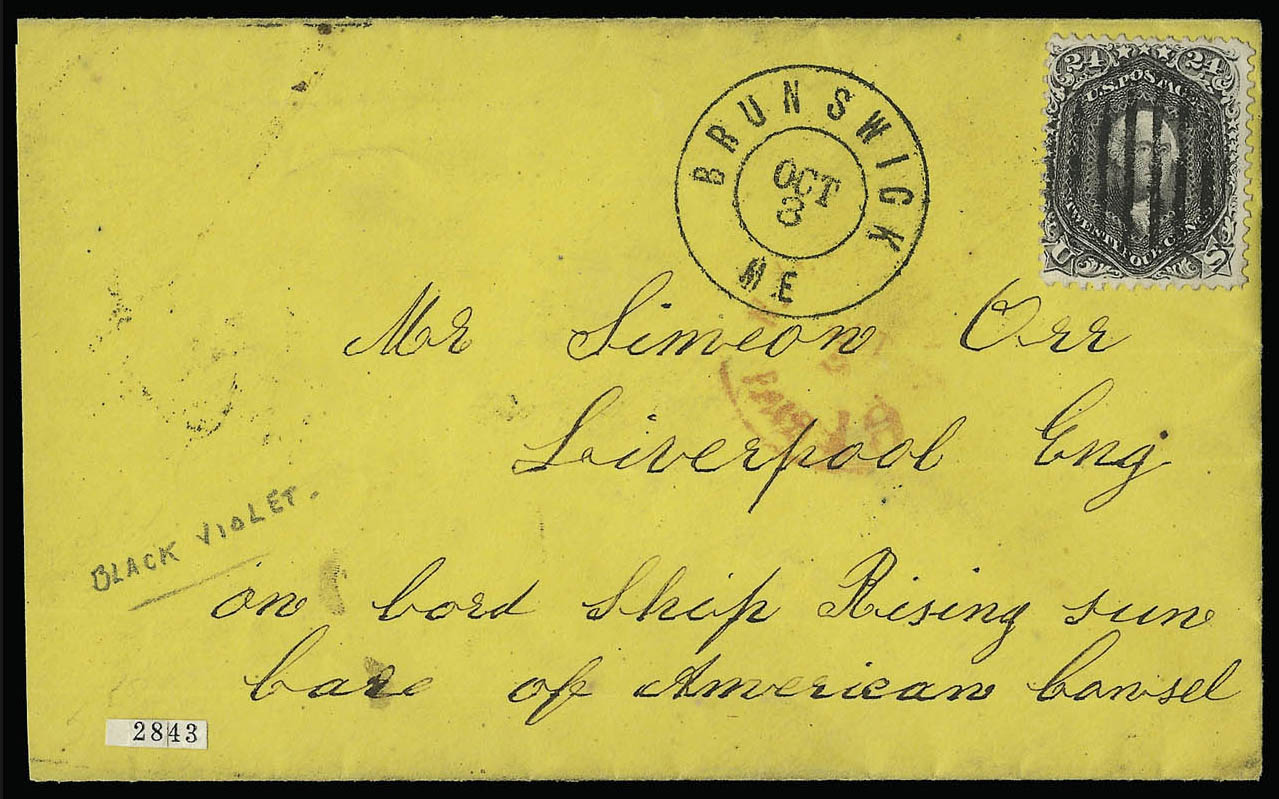 24 24
U.S. POSTAGE
BRUNSWICK
OCT
8
ME
TWENTY FOUR CENTS
U S
Mr Simeon Orr
PAID
Liverpool Eng
BLACK VIOLET.
on bord Ship Rising sun
Care of American Consel
2843